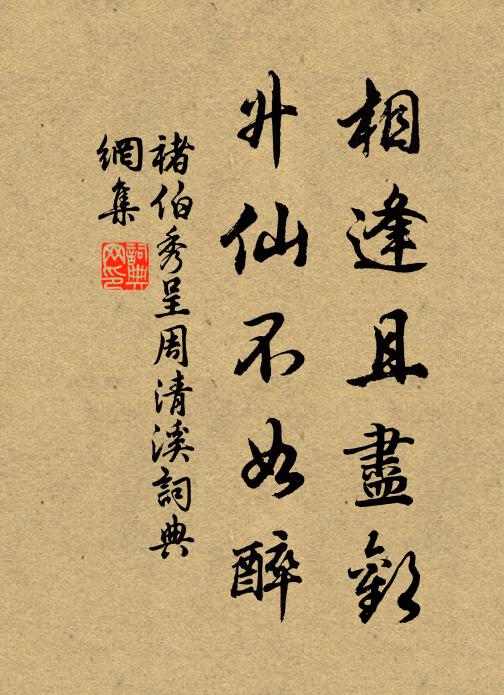 相逢且盡歡
升仙不如醉
褚伯秀呈周清溪詞典
網集
詞典
网印